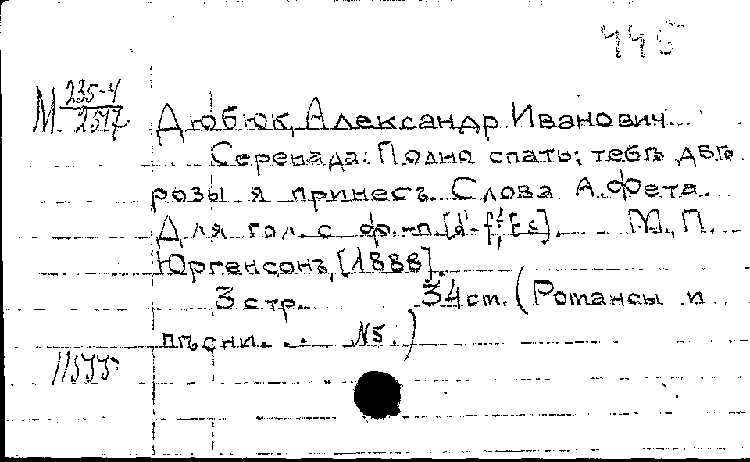 445
М 235-4
2517
Дюбюк, Александр Иванович.
Серенада: Полно спать; тебѣ двѣ
розы я принесъ. Слова А. Фета.
Для гол. с ф.-п. М., П.
Юргенсонъ, [1888].
3 стр. 34 ст. (Романсы и
пѣсни... №5.)